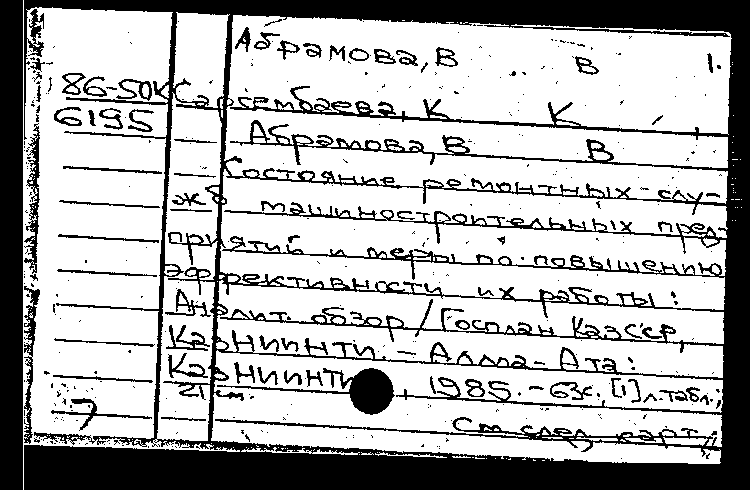 Абрамова, В В 1.
86-50К Сарсембаева, К К
6195 Абрамова, В В
Состояние ремонтных слу-
жб машиностроительных пред-
приятий и меры по повышению
эффективности их работы:
Аналит. обзор / Госплан КазССР,
КазНИИНТИ. – Алма-Ата:
КазНИИНТИ, 1985. – 63с., [1] л. табл.;
21 см.
См след карт.